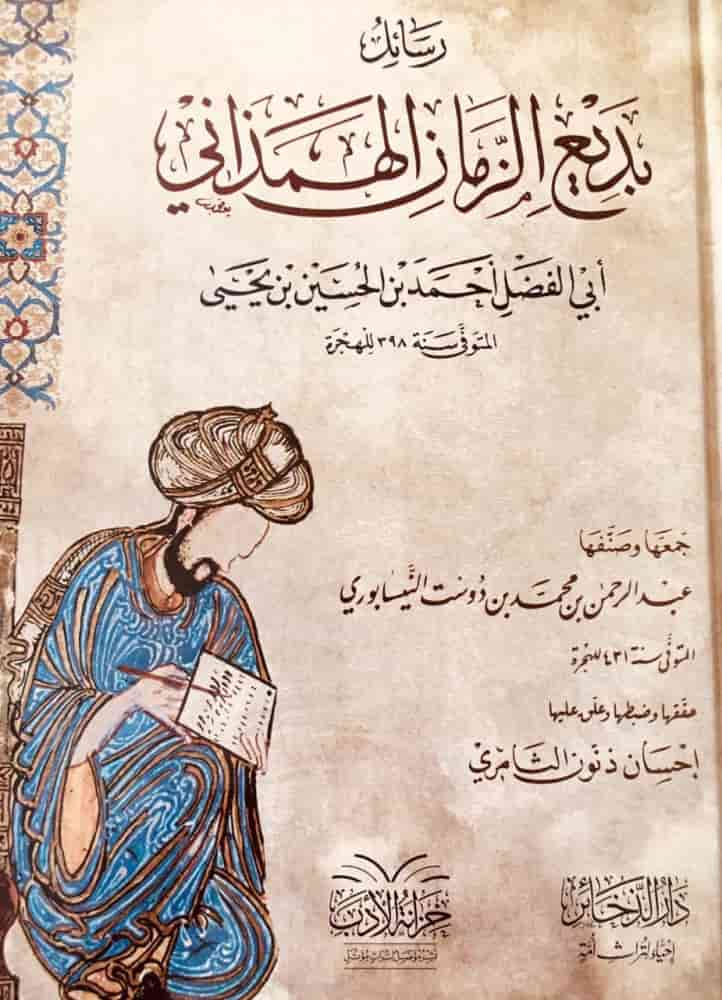 رَسَائِلُ
بَدِيْعِ الزَّمَانِ الهَمَذَانِي
أبي الفَضْلِ أحْمَدَ بْنِ الحُسَيْنِ بْنِ يَحْيَى
المتوفَّى سَنَة ٣٩٨ للهِجْرَة
جَمَعَهَا وصَنَّفَهَا
عبد الرحمٰن بن محمد بن دُوسْت النَّيْسابُوري
المتوفَّى سنة ٤٣١ للهجرة
حققها وضبطها وعلّق عليها
إحْسَان ذنُون الثَّامِري
دَارُ الذَّخَائر
إحْيَاءٌ لتُراثِ أُمَّة
خِزَانَةُ الأَدَب